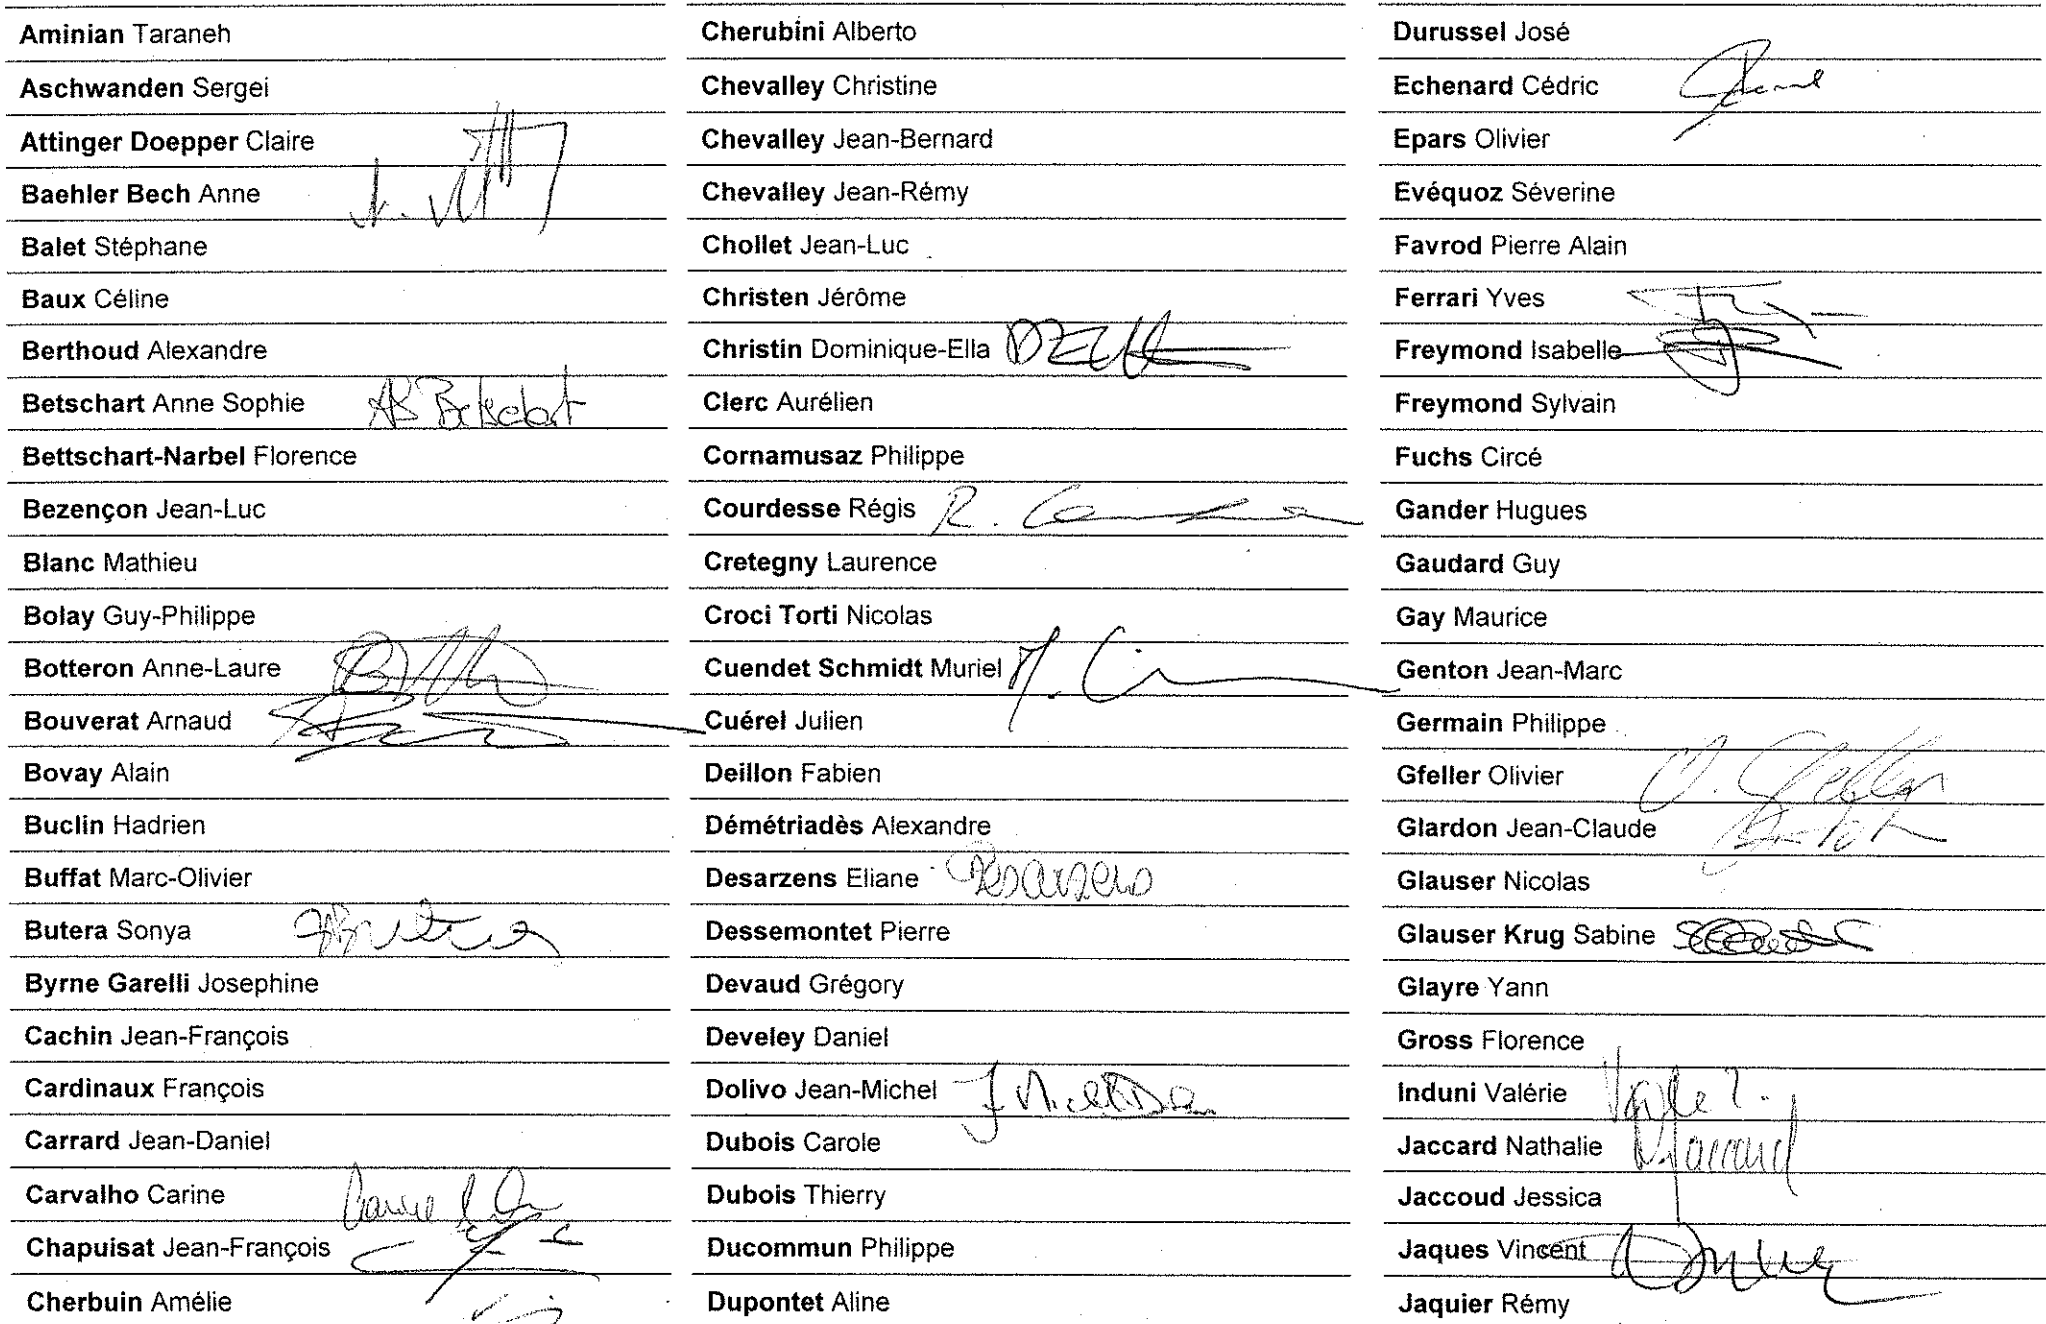 Aminian Taraneh
Aschwanden Sergei
Attinger Doepper Claire
Baehler Bech Anne
Balet Stéphane
Baux Céline
Berthoud Alexandre
Betschart Anne Sophie AS Betschart
Bettschart-Narbel Florence
Bezençon Jean-Luc
Blanc Mathieu
Bolay Guy-Philippe
Botteron Anne-Laure
Bouverat Arnaud
Bovay Alain
Buclin Hadrien
Buffat Marc-Olivier
Butera Sonya SButera
Byrne Garelli Josephine
Cachin Jean-François
Cardinaux François
Carrard Jean-Daniel
Carvalho Carine Carine
Chapuisat Jean-François
Cherbuin Amélie
Cherubini Alberto
Chevalley Christine
Chevalley Jean-Bernard
Chevalley Jean-Rémy
Chollet Jean-Luc
Christen Jérôme
Christin Dominique-Ella
Clerc Aurélien
Cornamusaz Philippe
Courdesse Régis R.
Cretegny Laurence
Croci Torti Nicolas
Cuendet Schmidt Muriel M.
Cuérel Julien
Deillon Fabien
Démétriadès Alexandre
Desarzens Eliane Desarzens
Dessemontet Pierre
Devaud Grégory
Develey Daniel
Dolivo Jean-Michel
Dubois Carole
Dubois Thierry
Ducommun Philippe
Dupontet Aline
Durussel José
Echenard Cédric
Epars Olivier
Evéquoz Séverine
Favrod Pierre Alain
Ferrari Yves
Freymond Isabelle
Freymond Sylvain
Fuchs Circé
Gander Hugues
Gaudard Guy
Gay Maurice
Genton Jean-Marc
Germain Philippe
Gfeller Olivier O. Gfeller
Glardon Jean-Claude
Glauser Nicolas
Glauser Krug Sabine
Glayre Yann
Gross Florence
Induni Valérie
Jaccard Nathalie N. Jaccard
Jaccoud Jessica
Jaques Vincent
Jaquier Rémy